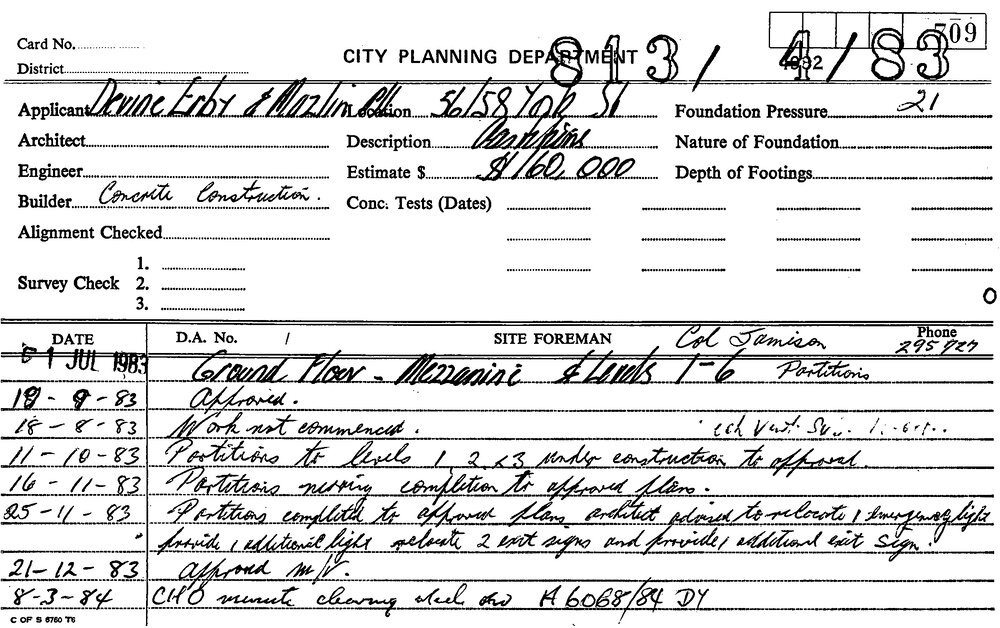 Card No.
CITY PLANNING DEPARTMENT
813/4/83
709
District
Applicant Devine Erby & Mazlin Location 56/58 York St Foundation Pressure 21
Architect Description Partitions Nature of Foundation
Engineer Estimate $ $160,000 Depth of Footings
Builder Concrete Construction. Conc. Tests (Dates)
Alignment Checked
Survey Check 1.
2.
3.
0
DATE D.A. No. / SITE FOREMAN Col Jamison Phone 295 727
1 JUL 1983 Ground Floor - Mezzanine & Levels 1-6 Partitions
19-9-83 Approved.
18-8-83 Work not commenced.
11-10-83 Partitions to levels 1, 2 & 3 under construction to approval.
16-11-83 Partitions nearing completion to approved plans.
25-11-83 Partitions completed to approved plans, architect advised to relocate 1 emergency light
" provide 1 additional light relocate 2 exit signs and provide 1 additional exit sign.
21-12-83 Approved m/v.
8-3-84 CHO minute clearing A6068/84 DY
C OF S 6760 T6